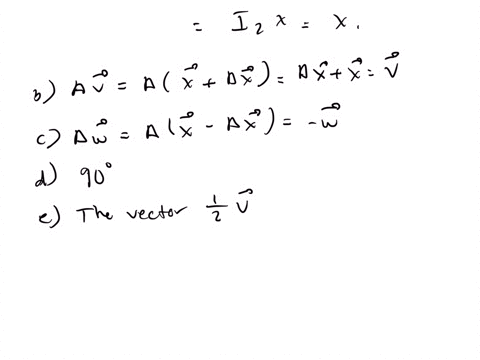 = I₂ x = x.
b) A v⃗ = A( x⃗ + A x⃗ ) = A x⃗ + x⃗ = v⃗
c) A w⃗ = A( x⃗ - A x⃗ ) = - w⃗
d) 90°
e) The vector 1/2 v⃗